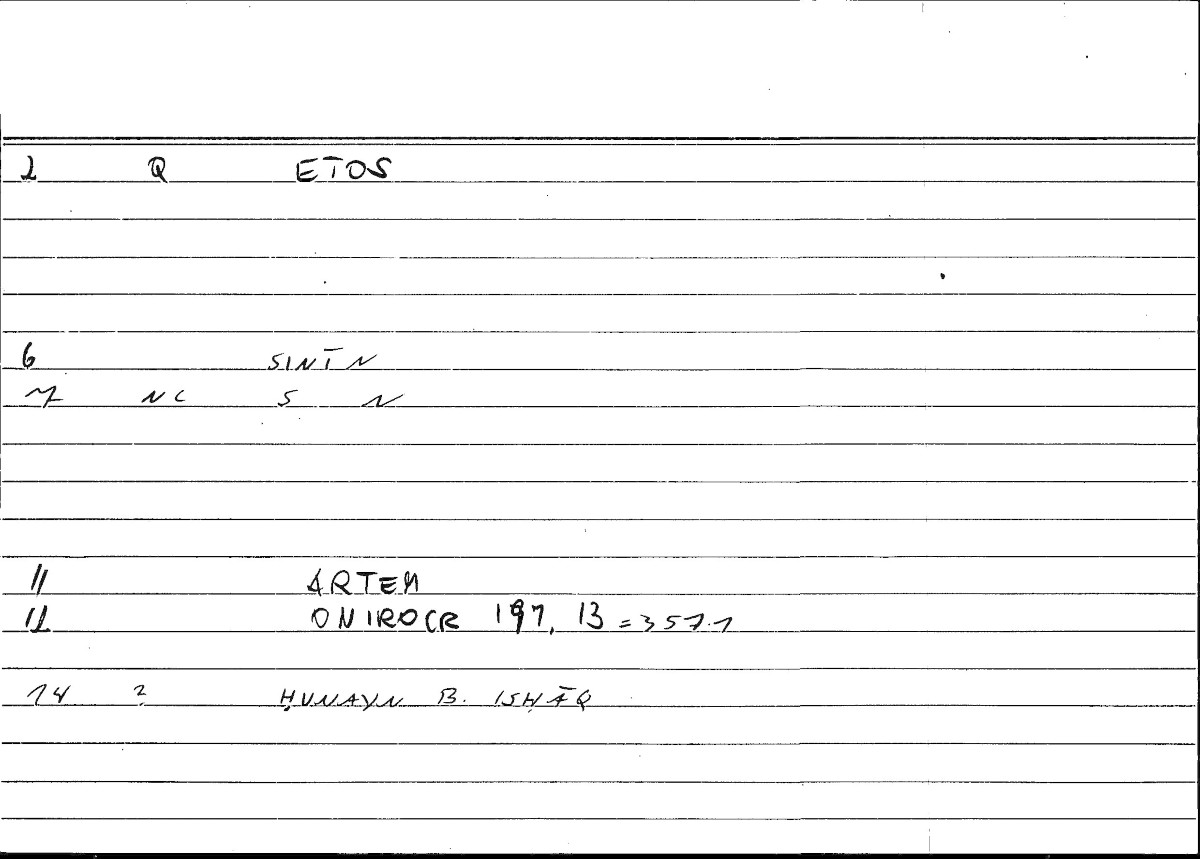 2 Q ETOS
6 SINĪN
7 NC S N
11 ARTEM
12 ONIROCR 197, 13 = 357.1
14 ? ḤUNAYN B. ISḤĀQ